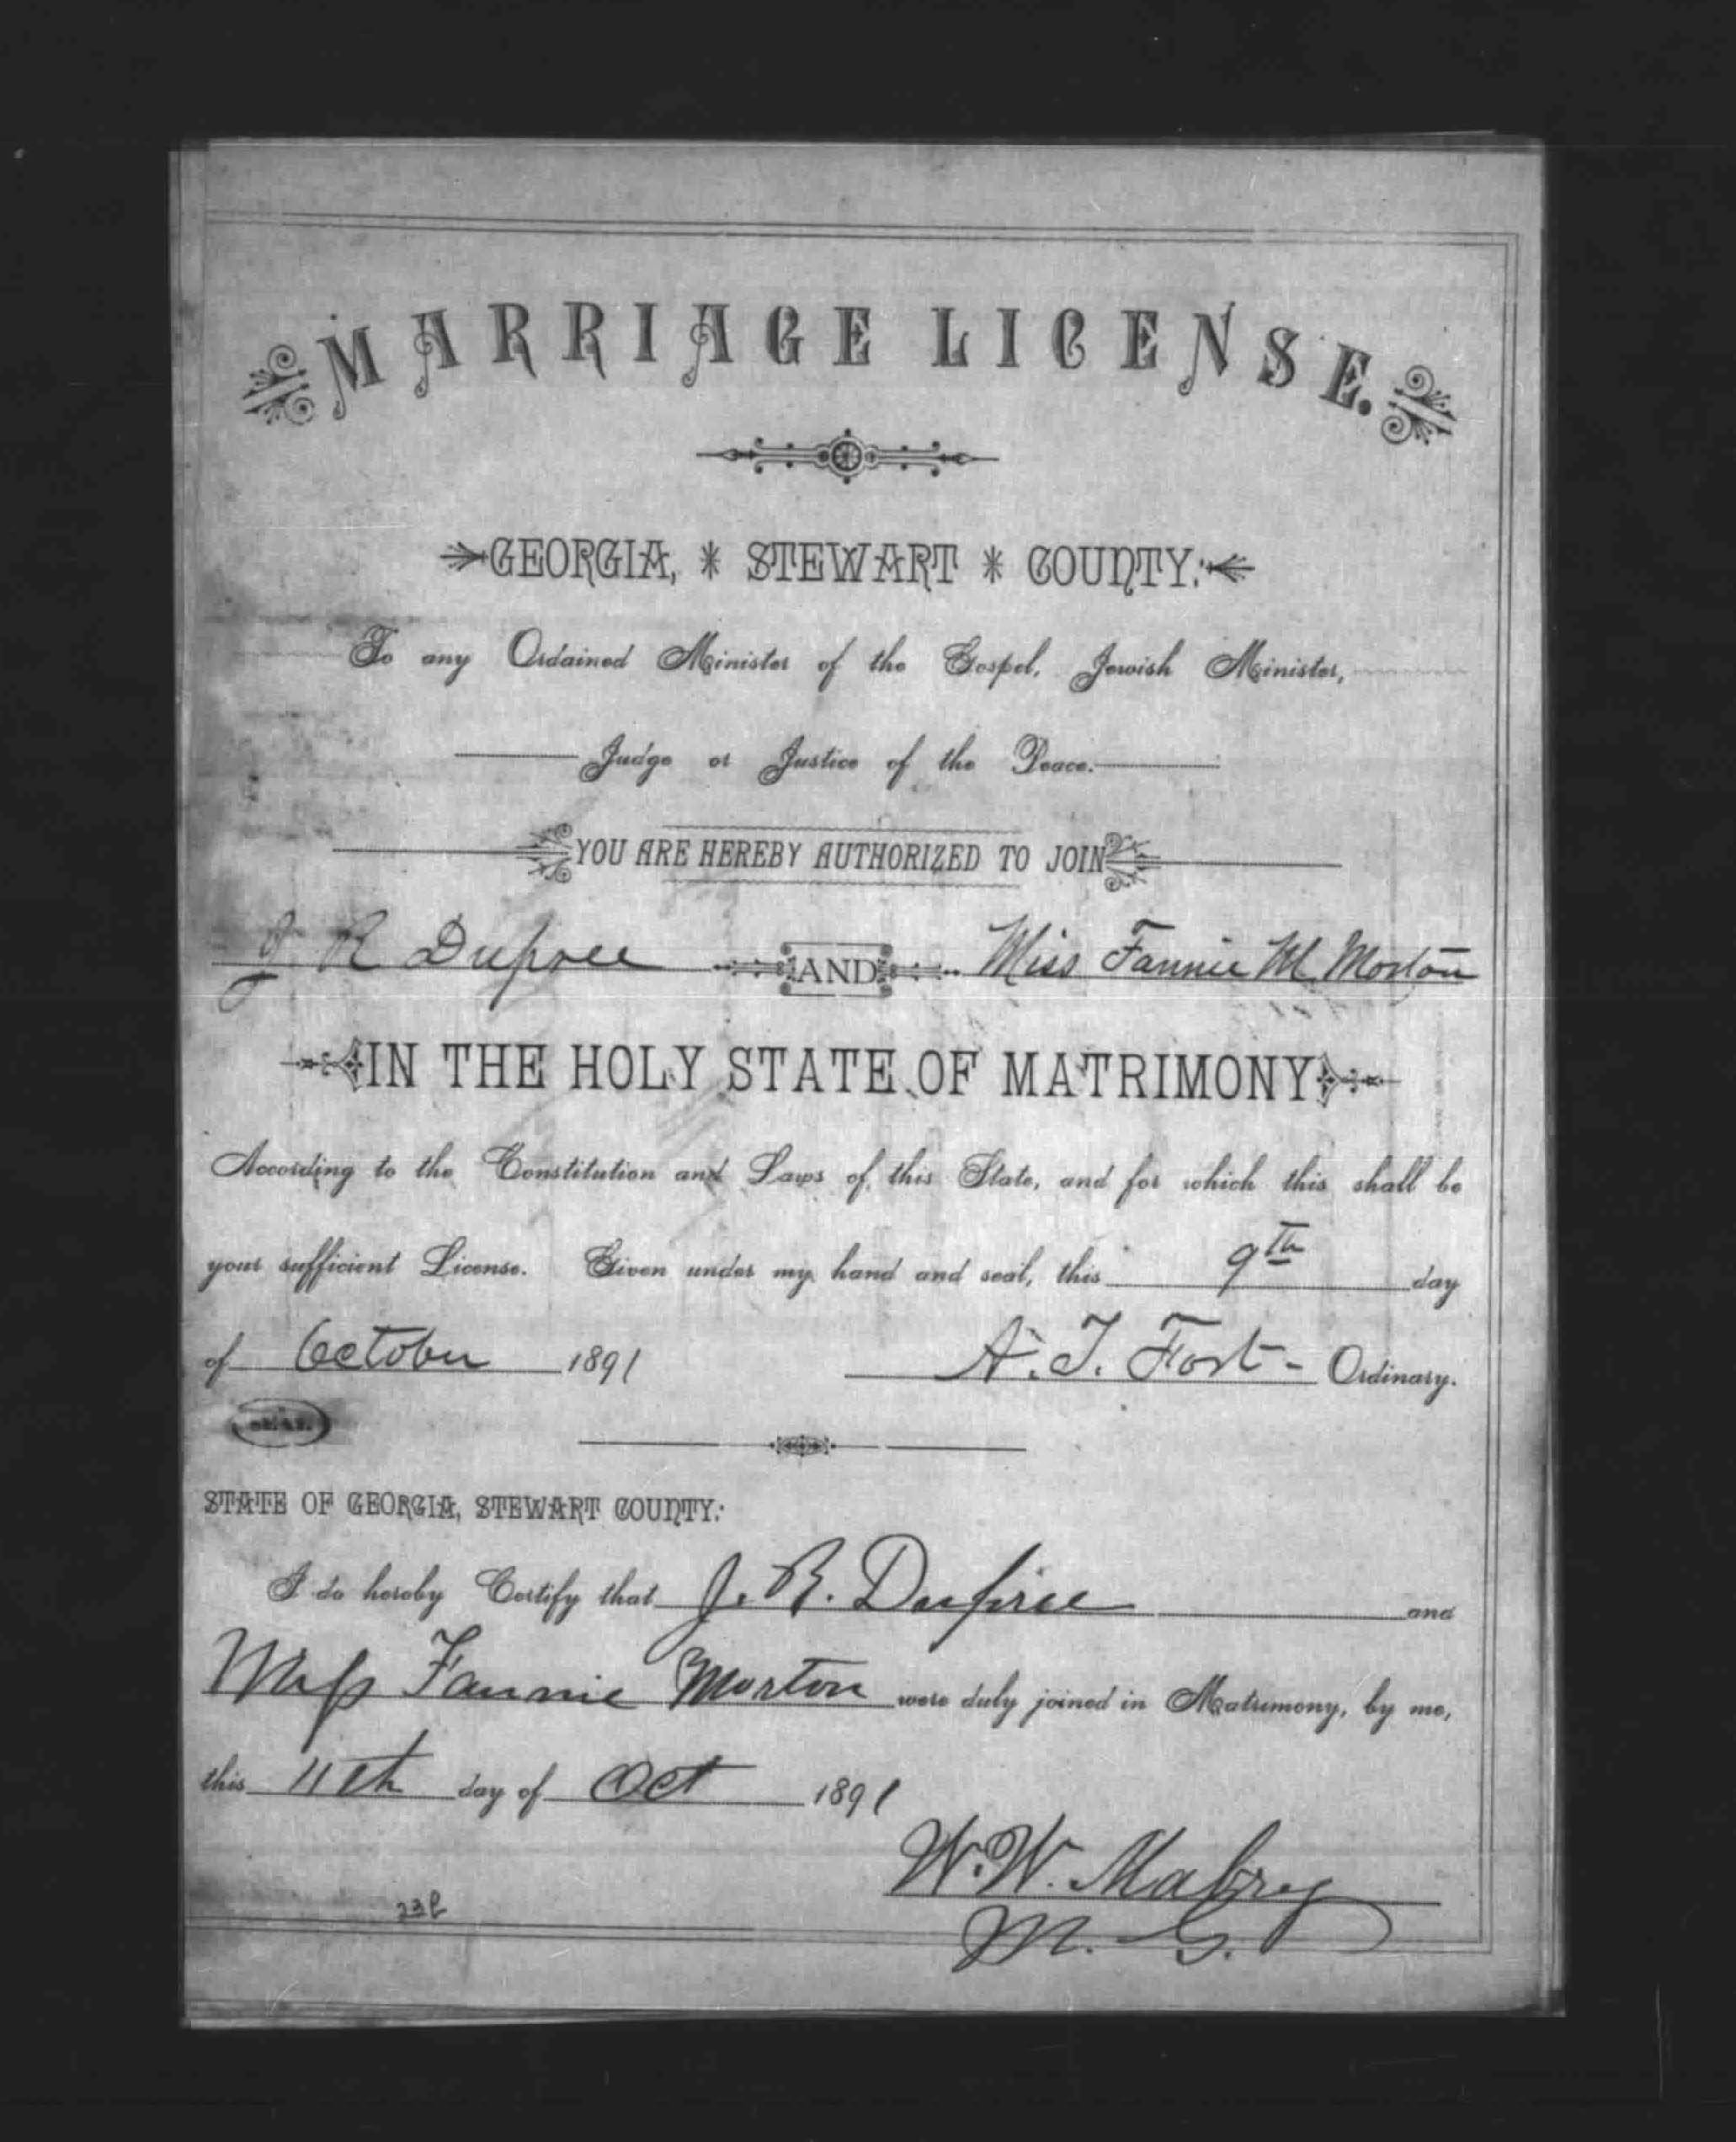 MARRIAGE LICENSE.
GEORGIA, * STEWART * COUNTY:
To any Ordained Minister of the Gospel, Jewish Minister,
Judge or Justice of the Peace.
YOU ARE HEREBY AUTHORIZED TO JOIN
J. R Dupree AND Miss Fannie M Morton
IN THE HOLY STATE OF MATRIMONY
According to the Constitution and Laws of this State, and for which this shall be
your sufficient License. Given under my hand and seal, this 9th day
of October 1891 A. T. Fort - Ordinary.
STATE OF GEORGIA, STEWART COUNTY:
I do hereby Certify that J. R. Dupree and
Miss Fannie Morton were duly joined in Matrimony, by me,
this 11th day of Oct 1891
W. W. Mabry
M. G.